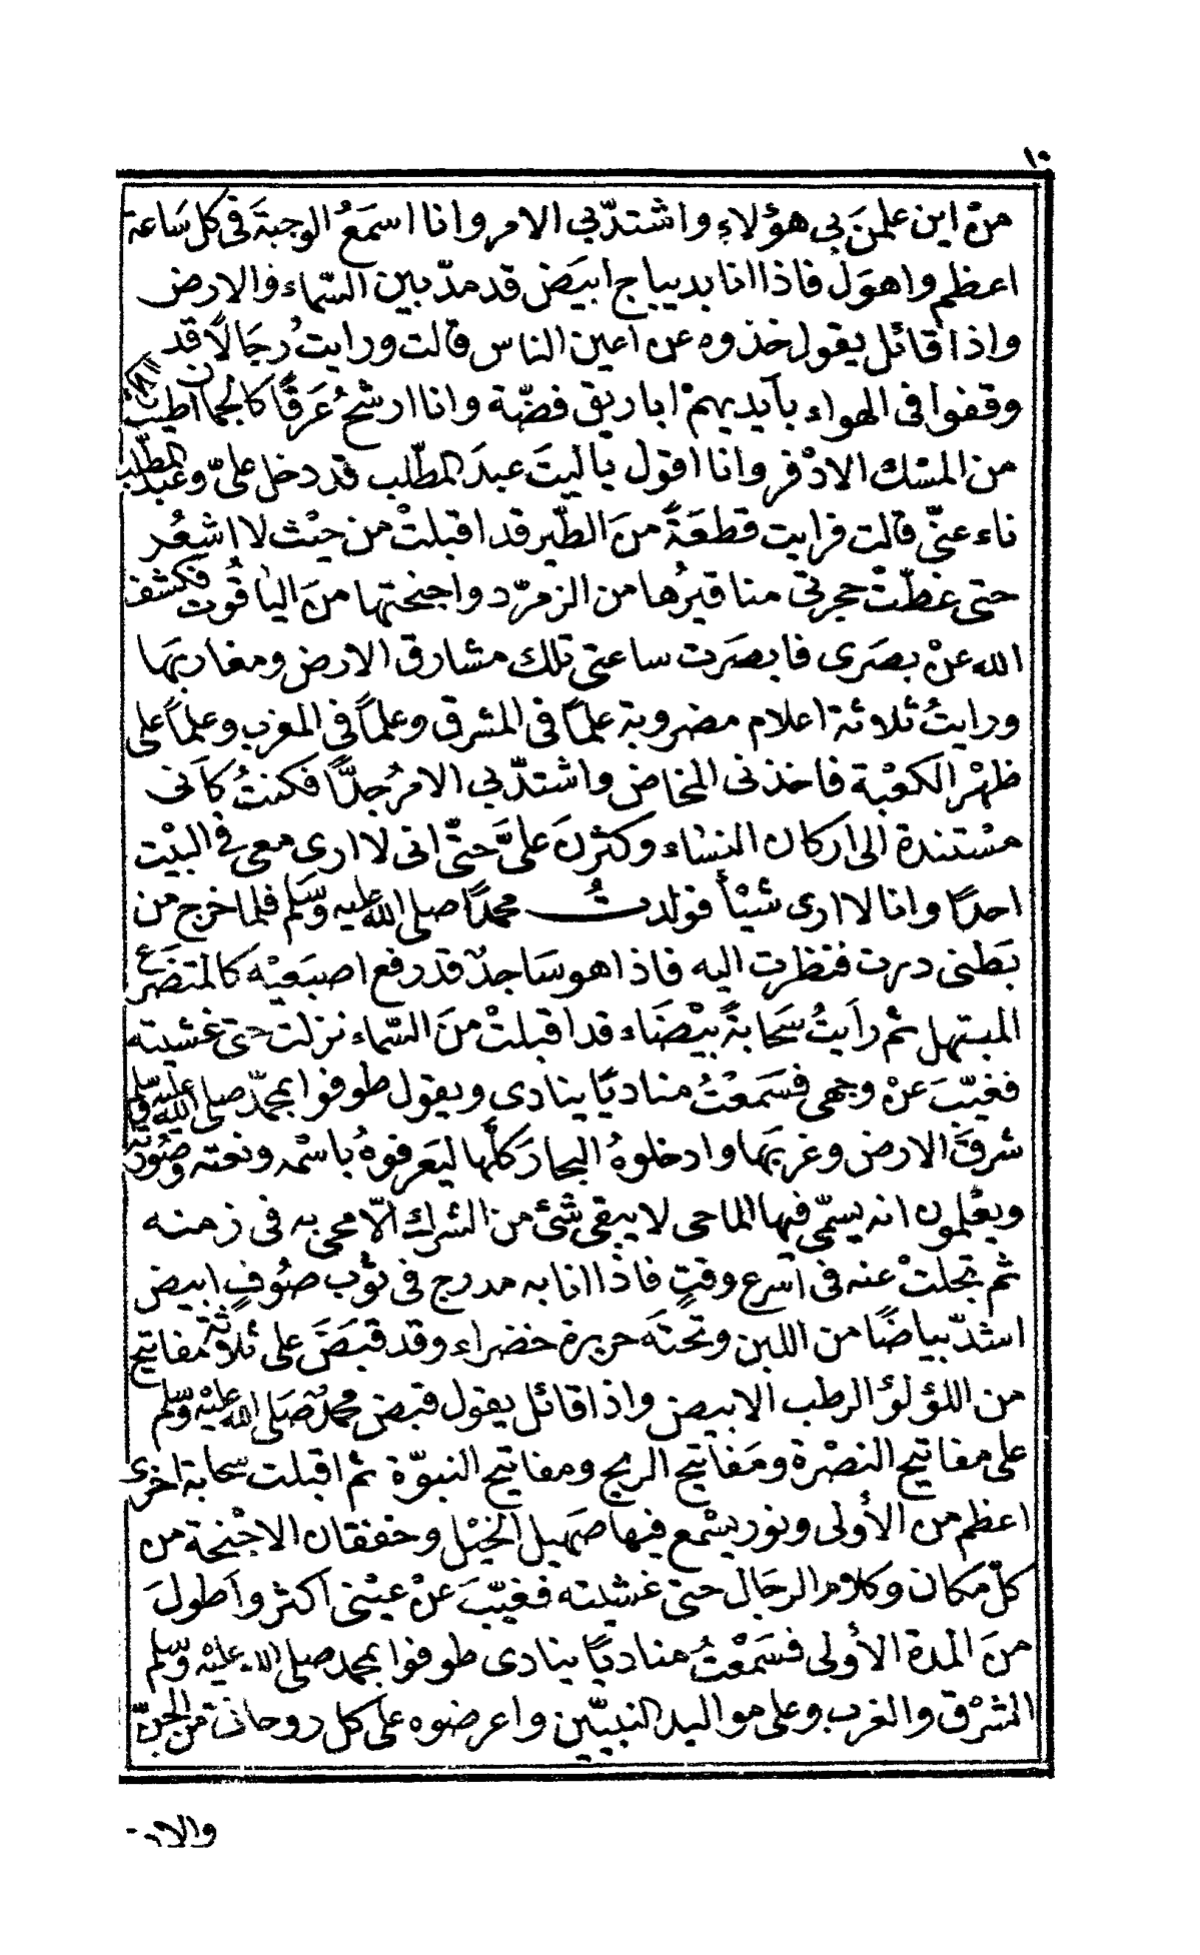 ١٠
منْ اين علمنَ بي هؤلاءِ واشتدّبي الامر وانا اسمَعُ الوجبةَ فى كل سَاعة
اعظم واهوَلَ فاذا انا بديباج ابيَض قد مدّ بين السّماء والارض
واذا قائل يقول خذوه عن اعين الناس قالت ورايتُ رُجَالاً قد
وقفوا فى الهواء بأيديهمْ اباريق فضّة وانا ارشحُ عَرَقًا كالجمان اطيبُ
من المسْك الاذْفر وانا اقول ياليتَ عبدَ المطّلب قد دخل علىّ وعبد المطّلب
ناء عنّى قالت فرايت قطعَةً منَ الطّير قد اقبلتْ من حيْث لا اشعُر
حتى غطّتْ حجرتى مناقيرُها من الزمرّد واجنحتها منَ الياقُوت فكشف
الله عنْ بصَرى فابصَرت ساعتى تلك مشارق الارض ومغاربَها
ورايتُ ثلاثة اعلام مضروبة علمًا فى المشرق وعلماً فى المغرب وعلماً على
ظهْر الكعْبة فاخذنى المخاض واشتدّبي الامرُ جدًّا فكنتُ كأنى
مسْتندة الى اركان النسَاء وكثرنَ علىَّ حتّى انى لا ارى معى فى البيْت
احدًا وانا لا ارى شيْأ فولدتُ محمدًا صلى الله عليه وسَلم فلما خرج من
بَطنى درت فنظرت اليه فاذا هو سَاجدٌ قد رفع اصبَعيْه كالمتضَرّع
المبتهل ثم رأيتُ سَحَابةً بيْضَاء قد اقبلتْ منَ السّماء نزلت حتى غشيته
فغيّبَ عنْ وجهى فسَمعْتُ مناديًا ينادى ويقول طوفوا بمحمّد صلى الله عليه وسلم
شرقَ الارض وغربَها وادخلوهُ البحارَ كلَّها ليَعرفوهُ باسْمه ونعته وصُورته
ويعْلمون انه يسمّى فيها الماحى لا يبقى شئ من الشرك الّا محى به فى زمنه
ثم تجلتْ عنه فى أسرع وقتٍ فاذا انا به مدرج فى ثوْب صُوفٍ ابيض
اشدّ بياضًا من اللبن وتحتَه حريرة خضراء وقد قبَضَ على ثلاثة مفاتيح
من اللؤلؤ الرطب الابيض واذا قائل يقول قبض محمدٌ صَلى الله عليْه وسّلم
على مفاتيح النصْرة ومَفاتيح الريح ومفاتيح النبوّة ثم اقبلت سحابة اخرى
اعظم من الأولى ونور يسْمع فيها صَهيل الخيْل وخفقان الاجْنحة من
كلّ مكان وكلام الرجال حتى غشيته فغيّبَ عنْ عيْنى أكثر وأطولَ
منَ المدة الأولى فسَمعْتُ مناديًا ينادى طوفوا بمحمد صلى الله عليْه وسّلم
المشرْق والغرب وعلى مواليد النبيّين واعرضوه على كل روحانى من الجنّ